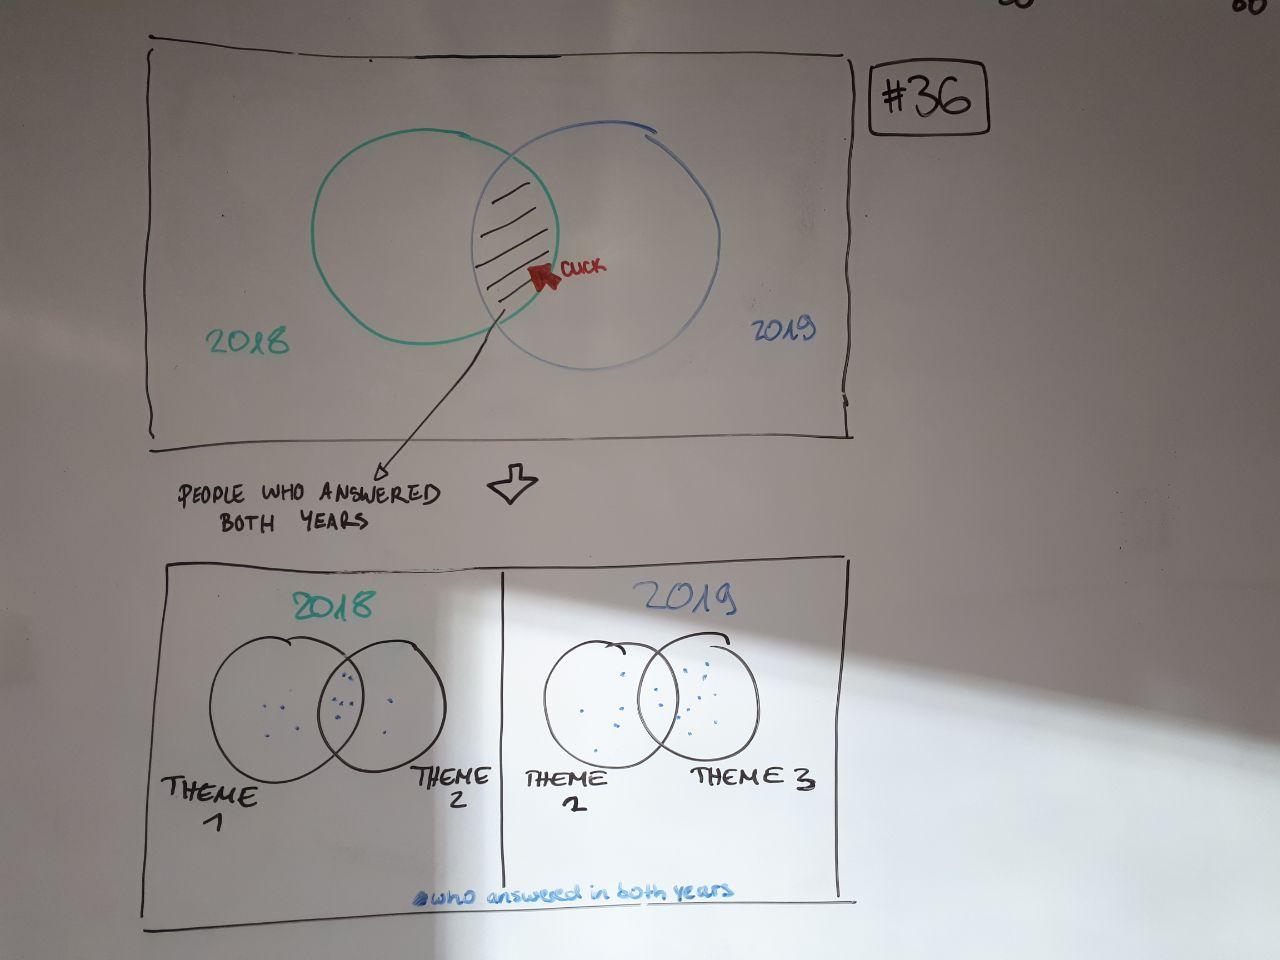 #36
CLICK
2018
2019
PEOPLE WHO ANSWERED
BOTH YEARS
2018
2019
THEME
1
THEME
2
THEME
2
THEME 3
who answered in both years